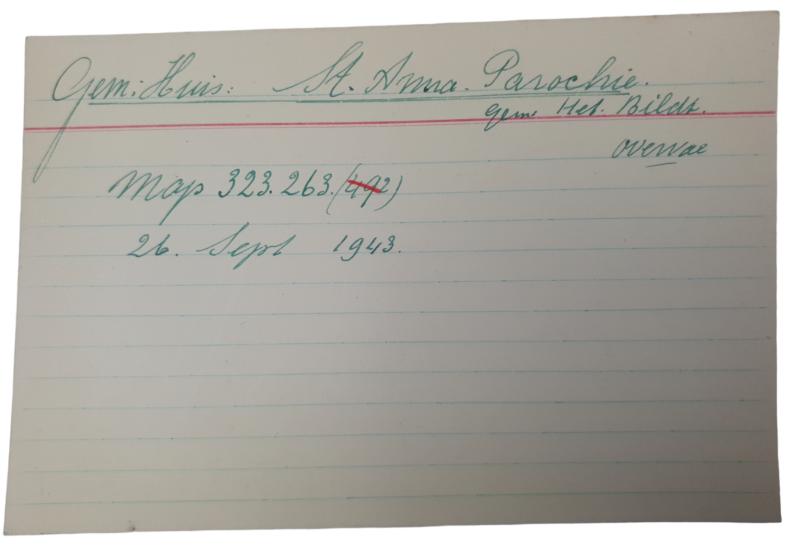 Gem: Huis: St. Anna. Parochie.
gem Het. Bildt.
overval
Map 323.263.(492)
26. Sept 1943.